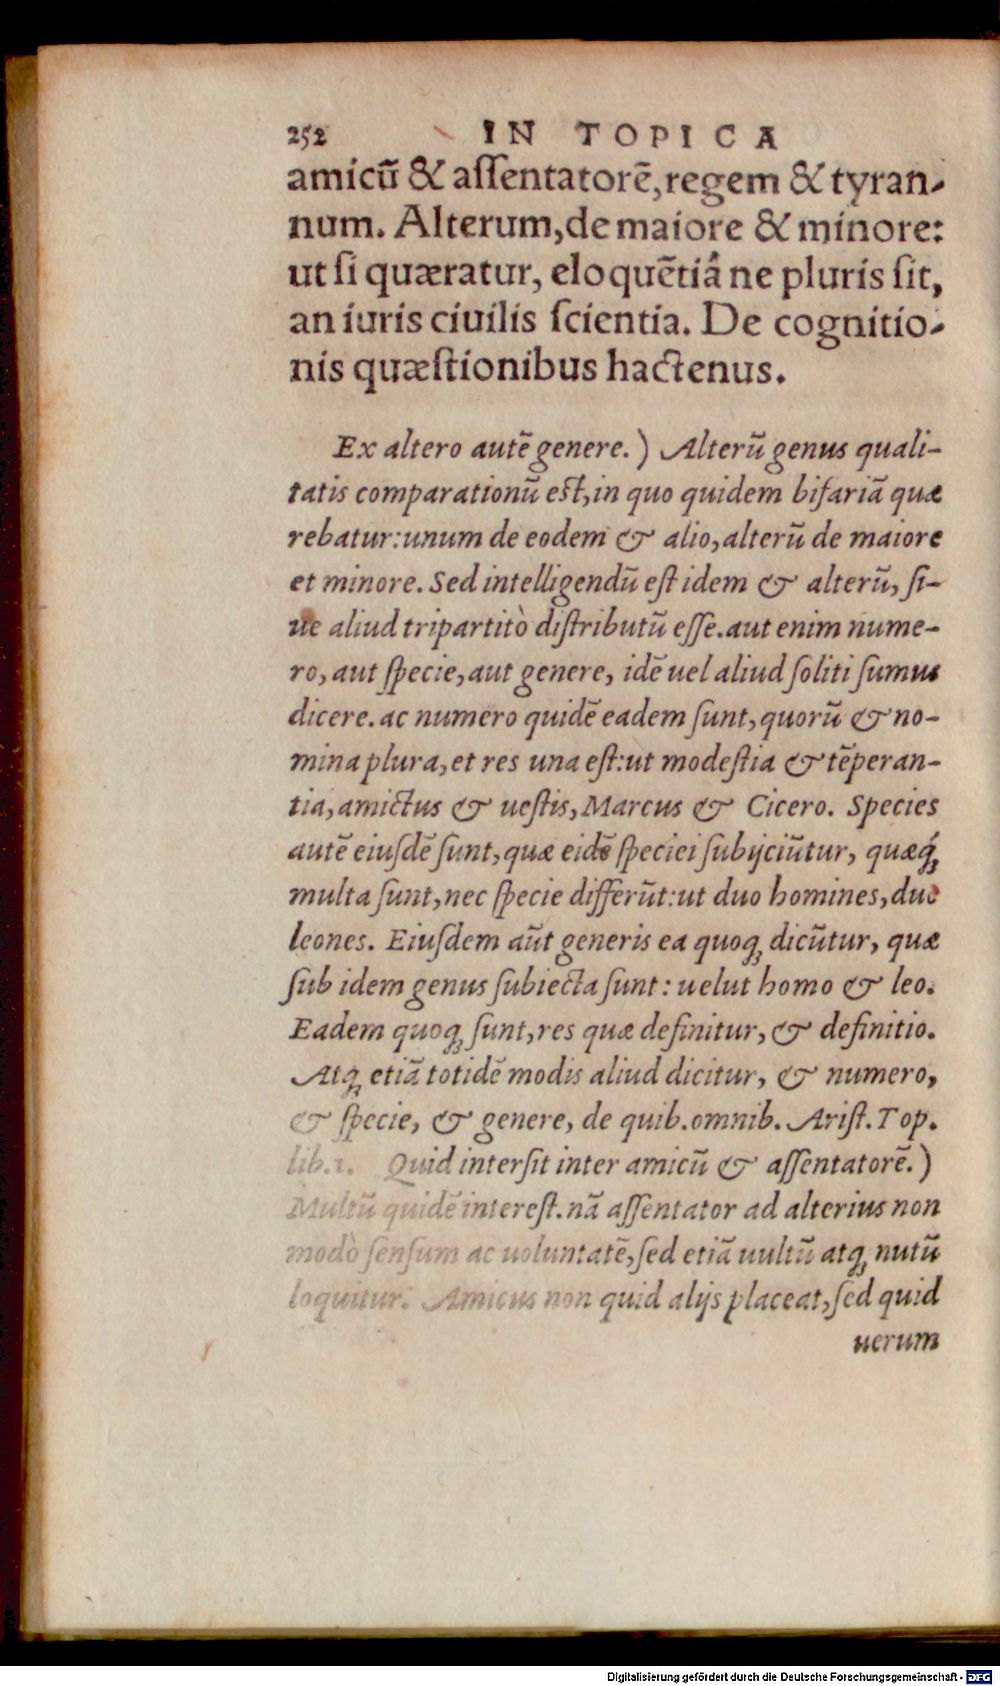 252 IN TOPICA
amicū & aſſentatorē, regem & tyran-
num. Alterum, de maiore & minore:
ut ſi quæratur, eloquētiá ne pluris ſit,
an iuris ciuilis ſcientia. De cognitio-
nis quæſtionibus hactenus.
Ex altero autē genere.) Alterū genus quali-
tatis comparationū eſt, in quo quidem bifariā quæ
rebatur: unum de eodem & alio, alterū de maiore
et minore. Sed intelligendū eſt idem & alterū, ſi-
ue aliud tripartitò diſtributū eſſe. aut enim nume-
ro, aut ſpecie, aut genere, idē uel aliud ſoliti ſumus
dicere. ac numero quidē eadem ſunt, quorū & no-
mina plura, et res una eſt: ut modeſtia & tēperan-
tia, amictus & ueſtis, Marcus & Cicero. Species
autē eiuſdē ſunt, quæ eidē ſpeciei ſubijciūtur, quæq́;
multa ſunt, nec ſpecie differūt: ut duo homines, duo
leones. Eiuſdem aūt generis ea quoq; dicūtur, quæ
ſub idem genus ſubiecta ſunt: uelut homo & leo.
Eadem quoq; ſunt, res quæ definitur, & definitio.
Atq; etiā totidē modis aliud dicitur, & numero,
& ſpecie, & genere, de quib. omnib. Ariſt. Top.
lib. 1. Quid interſit inter amicū & aſſentatorē.)
Multū quidē intereſt. nā aſſentator ad alterius non
modò ſenſum ac uoluntatē, ſed etiā uultū atq; nutū
loquitur. Amicus non quid alijs placeat, ſed quid
uerum
Digitalisierung gefördert durch die Deutsche Forschungsgemeinschaft - DFG